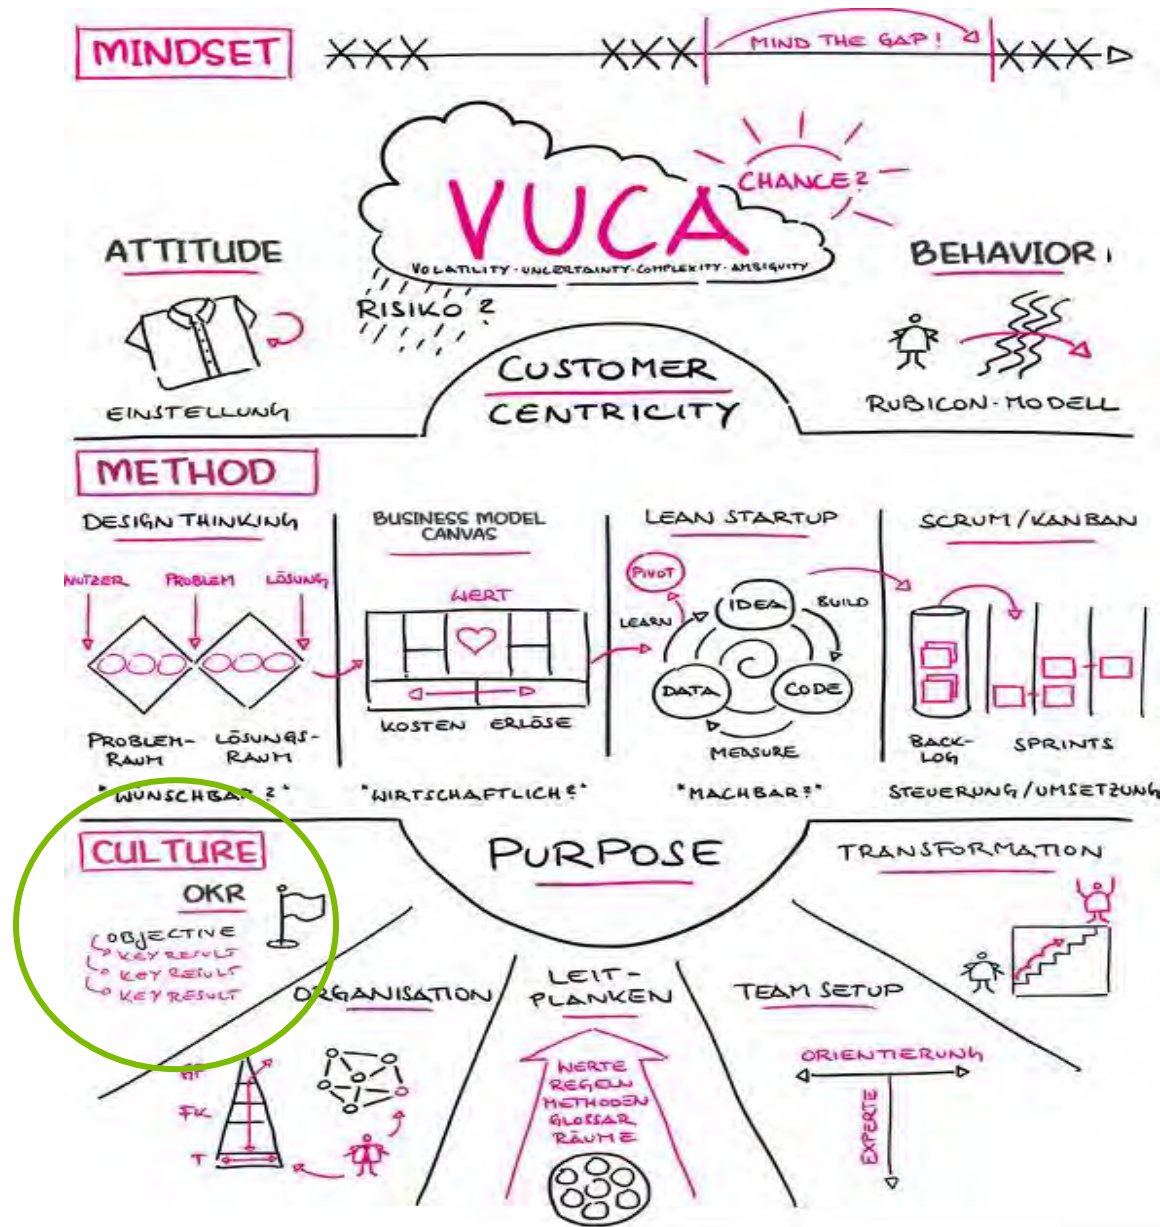 MINDSET
MIND THE GAP!
VUCA
CHANCE?
VOLATILITY · UNCERTAINTY · COMPLEXITY · AMBIGUITY
RISIKO?
ATTITUDE
EINSTELLUNG
CUSTOMER
CENTRICITY
BEHAVIOR
RUBICON-MODELL
METHOD
DESIGN THINKING
NUTZER PROBLEM LÖSUNG
PROBLEM-
RAUM
LÖSUNGS-
RAUM
"WÜNSCHBAR?"
BUSINESS MODEL
CANVAS
WERT
KOSTEN ERLÖSE
"WIRTSCHAFTLICH?"
LEAN STARTUP
PIVOT
IDEA
BUILD
LEARN
DATA
CODE
MEASURE
"MACHBAR?"
SCRUM/KANBAN
BACK-
LOG
SPRINTS
STEUERUNG/UMSETZUNG
CULTURE
OKR
OBJECTIVE
KEY RESULT
KEY RESULT
KEY RESULT
PURPOSE
TRANSFORMATION
ORGANISATION
FK
T
LEIT-
PLANKEN
WERTE
REGELN
METHODEN
GLOSSAR
RÄUME
TEAM SETUP
ORIENTIERUNG
EXPERTE